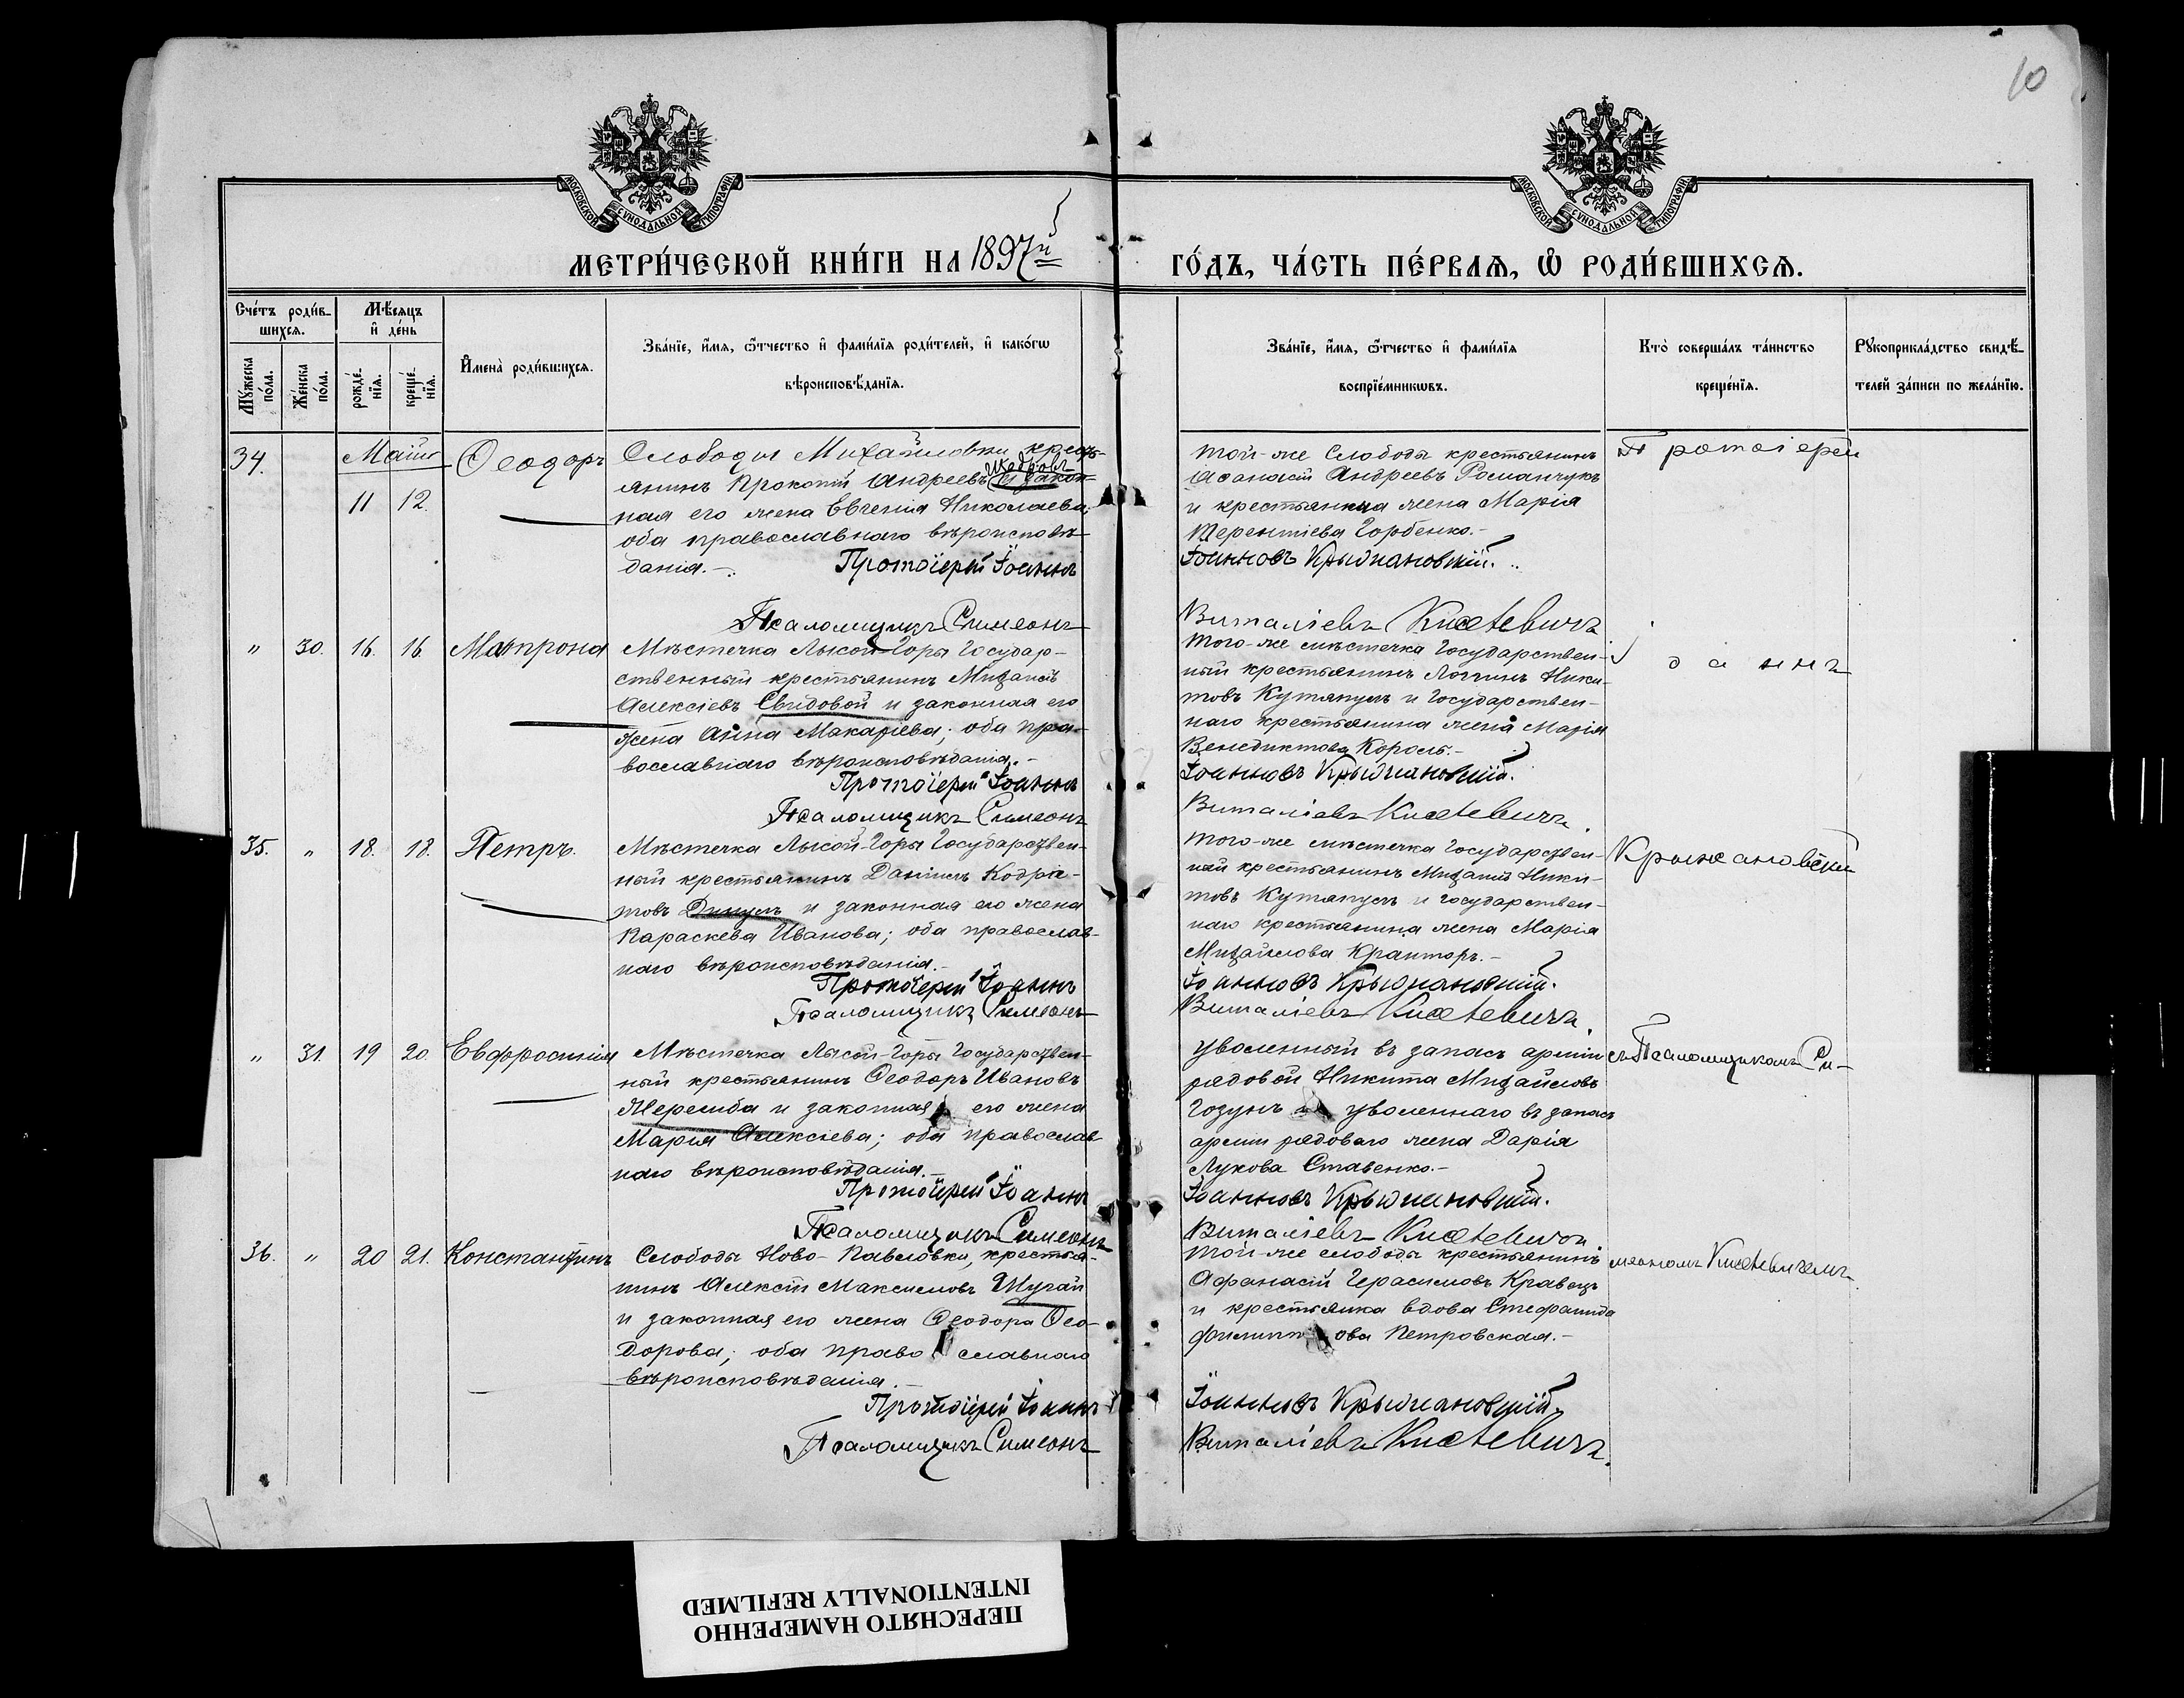 10
МОСКОВСКОЙ СѴНОДАЛЬНОЙ ТИПОГРАФІИ
МОСКОВСКОЙ СѴНОДАЛЬНОЙ ТИПОГРАФІИ
МЕТРИ́ЧЕСКОЙ КНИ́ГИ НА 1897й
ГО́ДЪ, ЧА́СТЬ ПЕ́РВАѦ, Ѽ РОДИ́ВШИХСѦ.
Сче́тъ роди́в-
шихсѧ.
Мѣ́сяцъ
и҆ де́нь
Мꙋ́жеска
по́ла.
Же́нска
по́ла.
рожде́-
нїѧ.
креще́-
нїѧ.
И҆мена̀ роди́вшихсѧ.
Зва́нїе, и҆́мѧ, ѻ҆́тчество и҆ фами́лїѧ роди́телей, и҆ како́гѡ
вѣроисповѣ́данїѧ.
Зва́нїе, и҆́мѧ, ѻ҆́тчество и҆ фами́лїѧ
воспрїе́мникѡвъ.
Кто̀ соверша́лъ та́инство
креще́нїѧ.
Рꙋкоприкла́дство свидѣ́-
телей за́писи по жела́нїю.
34.
Маій
11 12.
Ѳеодоръ
Слободы Михайловки кресть-
янинъ Прокопій Андреевъ Щедровъ и закон-
ная его жена Евгенія Николаева;
оба православнаго вѣроисповѣ-
данія.-
Протоіерей Іоаннъ
Псаломщикъ Симеонъ
той-же Слободы крестьянинъ
Аѳанасій Андреевъ Романчукъ
и крестьянина жена Марія
Терентіева Горбенко.-
Іоанновъ Крыжановскій.
Виталіевъ Кистевичъ
Протоіерей
" 30. 16. 16. Матрона
Мѣстечка Лысой-Горы Государ-
ственный крестьянинъ Михаилъ
Алексіевъ Свидовой и законная его
жена Анна Макаріева; оба пра-
вославнаго вѣроисповѣданія.-
Протоіерей Іоаннъ
Псаломщикъ Симеонъ
Того-же мѣстечка Государствен-
ный крестьянинъ Логинъ Ники-
товъ Кутяпулъ и Государствен-
наго крестьянина жена Марія
Венедиктова Король.-
Іоанновъ Крыжановскій.
Виталіевъ Кистевичъ.
Іоаннъ
35. " 18. 18. Петръ.
Мѣстечка Лысой-Горы Государствен-
ный крестьянинъ Даніилъ Кодра-
товъ и законная его жена
Параскева Иванова; оба православ-
наго вѣроисповѣданія.-
Протоіерей Іоаннъ
Псаломщикъ Симеонъ
Того-же мѣстечка Государствен-
ный крестьянинъ Михаилъ Ники-
товъ Кутяпулъ и Государствен-
наго крестьянина жена Марія
Михайлова Крапторъ.-
Іоанновъ Крыжановскій.
Виталіевъ Кистевичъ.
Крыжановскій
" 31. 19 20. Евфросинія
Мѣстечка Лысой-Горы Государствен-
ный крестьянинъ Ѳеодоръ Ивановъ
и законная его жена
Марія Алексіева; оба православ-
наго вѣроисповѣданія.-
Протоіерей Іоаннъ
Псаломщикъ Симеонъ
Уволенный въ запасъ арміи
рядовой Никита Михайловъ
Гозунъ и уволеннаго въ запасъ
арміи рядового жена Дарія
Лукова Ставенко.-
Іоанновъ Крыжановскій.
Виталіевъ Кистевичъ
съ Псаломщикомъ Си-
36. " 20 21. Константинъ
Слободы Ново-Павловки, крестья-
нинъ Алексій Максимовъ Шугай
и законная его жена Ѳеодора Ѳео-
дорова; оба православнаго
вѣроисповѣданія.-
Протоіерей Іоаннъ
Псаломщикъ Симеонъ
Той-же слободы крестьянинъ
Афанасій Герасимовъ Кравецъ
и крестьянка вдова Стефанида
Филиппова Петровская.-
Іоанновъ Крыжановскій.
Виталіевъ Кистевичъ.
меономъ Кистевичемъ.
ПЕРЕСНЯТО НАМЕРЕННО
INTENTIONALLY REFILMED